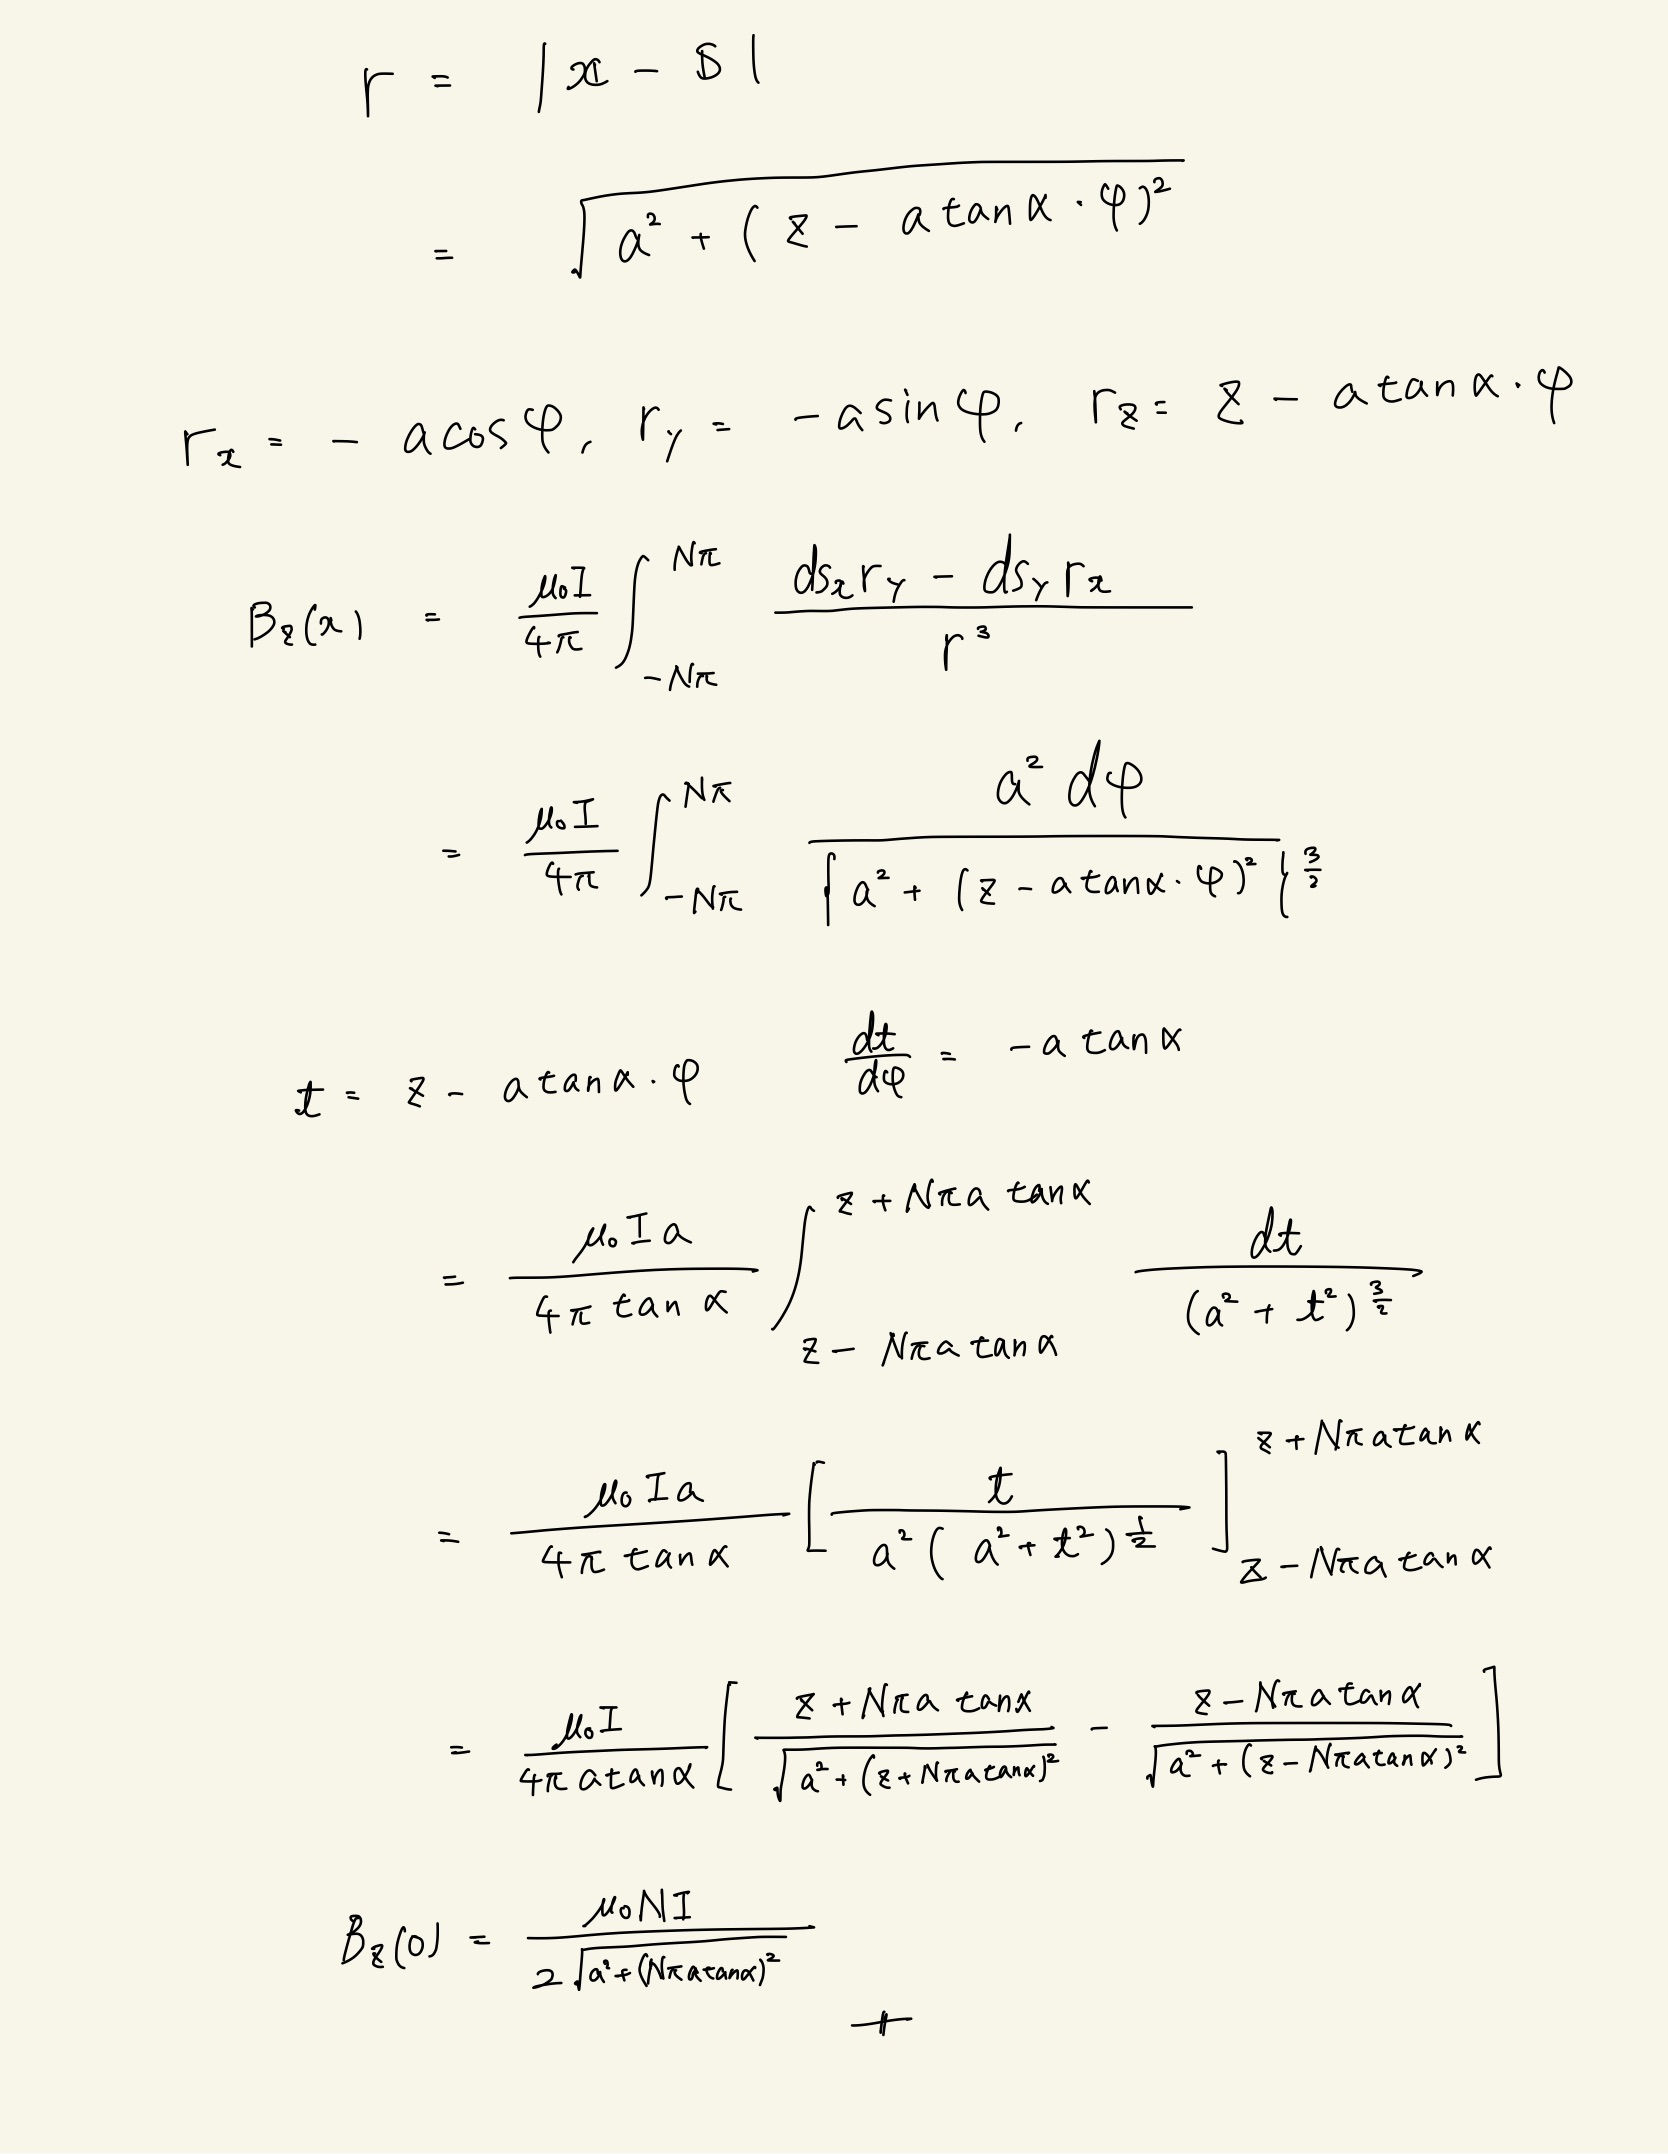 r = |x - s|
= √(a² + (z - a tanα・φ)²)
r_x = - a cosφ, r_y = - a sinφ, r_z = z - a tanα・φ
B_z(x) = μ₀I/4π ∫_{-Nπ}^{Nπ} (ds_x r_y - ds_y r_x)/r³
= μ₀I/4π ∫_{-Nπ}^{Nπ} a² dφ/{a² + (z - a tanα・φ)²}^{3/2}
t = z - a tanα・φ dt/dφ = - a tanα
= μ₀Ia/(4π tanα) ∫_{z - Nπa tanα}^{z + Nπa tanα} dt/(a² + t²)^{3/2}
= μ₀Ia/(4π tanα) [t/(a²(a² + t²)^{1/2})]_{z - Nπa tanα}^{z + Nπa tanα}
= μ₀I/(4πa tanα) [(z + Nπa tanα)/√(a² + (z + Nπa tanα)²) - (z - Nπa tanα)/√(a² + (z - Nπa tanα)²)]
B_z(0) = μ₀NI/(2√(a² + (Nπa tanα)²))